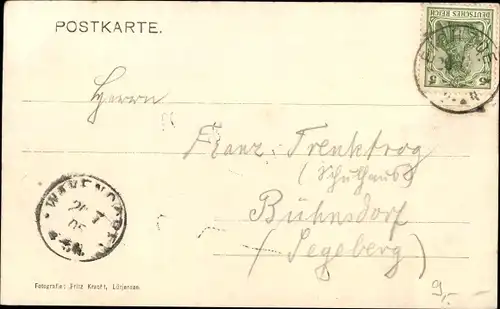 POSTKARTE.
DEUTSCHES REICH
5 5
Herrn
Franz Trenktrog
(Schulhaus)
Bühnsdorf
(Segeberg)
WAKENDORF
26 7
05
Fotografie: Fritz Kracht, Lütjensee.
9,-